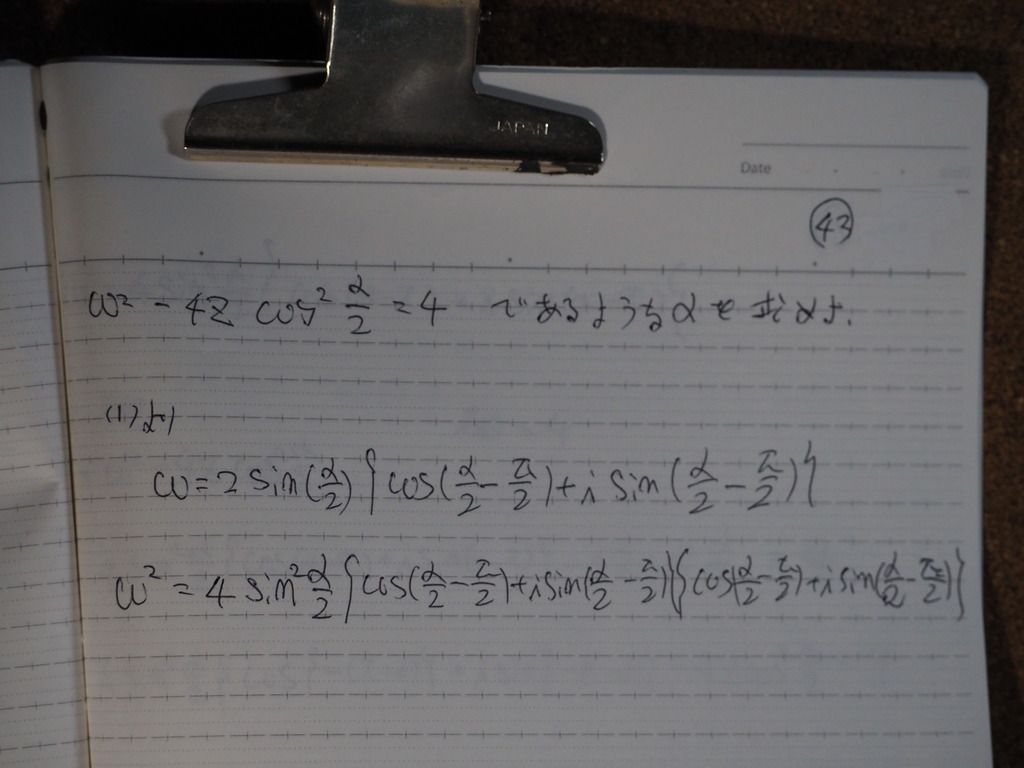 JAPAN
Date
43
ω² - 4z cos² α/2 = 4 であるようなαを求めよ.
(1)より
ω = 2 sin(α/2) {cos(α/2 - π/2) + i sin(α/2 - π/2)}
ω² = 4 sin² α/2 {cos(α/2 - π/2) + i sin(α/2 - π/2)}{cos(α/2 - π/2) + i sin(α/2 - π/2)}